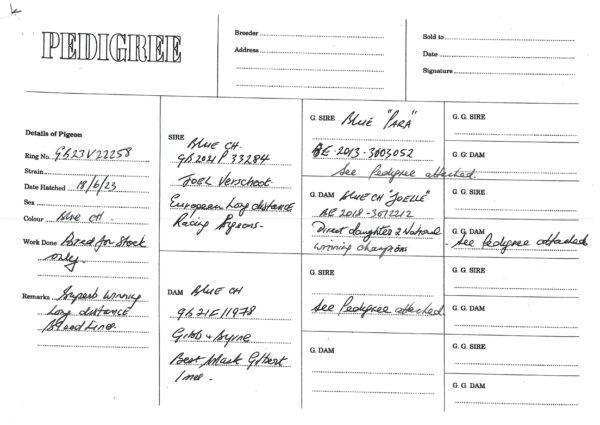 PEDIGREE
Breeder
Address
Sold to
Date
Signature
Details of Pigeon
Ring No. GB23V22258
Strain
Date Hatched 18/6/23
Sex
Colour Blue CH.
Work Done Bred for Stock
only.
Remarks Superb winning
Long distance
Blood Lines
SIRE
Blue CH.
GB2021 P 33284
JOEL Verschoot
European Long distance
Racing Pigeons.
DAM Blue CH
GB21E11978
Gibb & Byrne
Best Mark Gilbert
Line.
G. SIRE Blue "PARA"
BE-2013-3003052
See Pedigree attached.
G. DAM Blue CH "JOELLE"
BE 2018-3072212
Direct daughter 2 National
winning champions
G. SIRE
See Pedigree attached
G. DAM
G. G. SIRE
G. G. DAM
G. G. SIRE
G. G. DAM
- See Pedigree attached
G. G. SIRE
G. G. DAM
G. G. SIRE
G. G. DAM